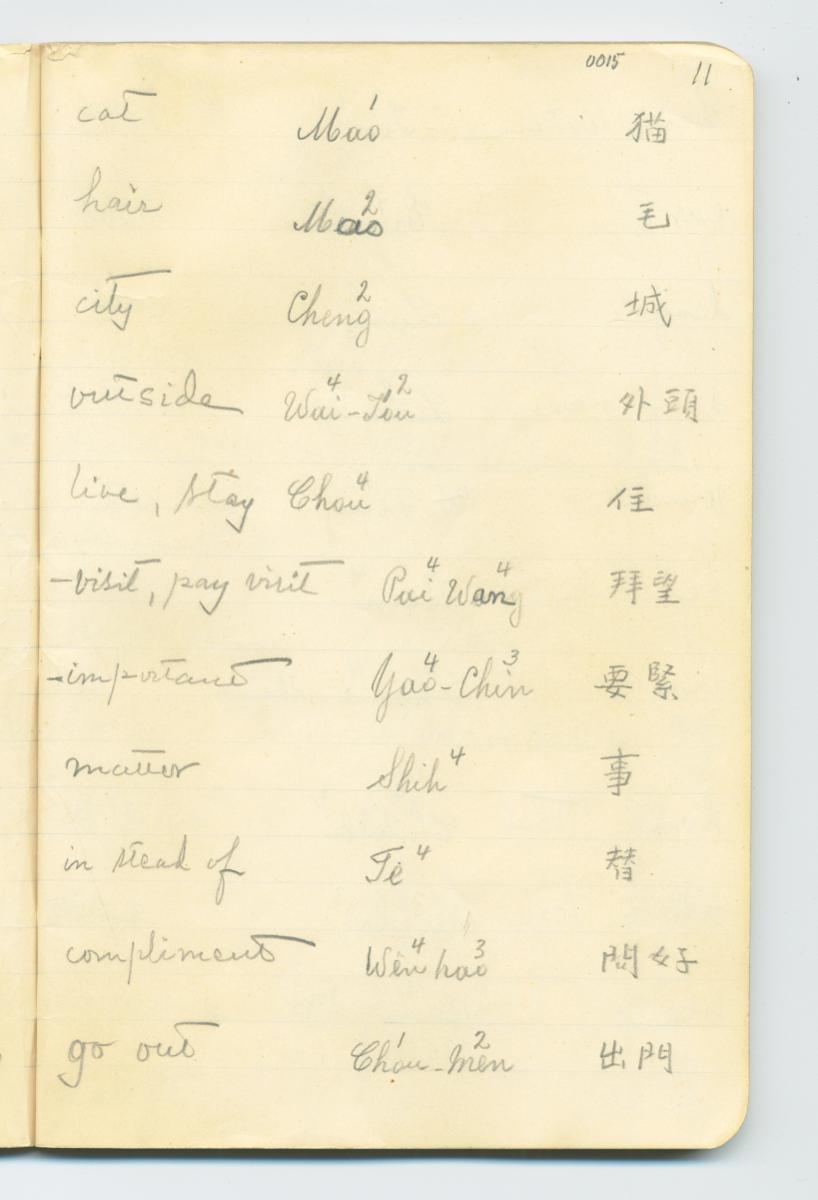 0015 11
cat Mao1 猫
hair Mao2 毛
city Cheng2 城
outside Wai4-Tou2 外頭
live, stay Chou4 住
-visit, pay visit Pai4 Wang4 拜望
-important Yao4-Chin3 要緊
matter Shih4 事
in stead of Te4 替
compliment Wên4 hao3 問好
go out Chou1-Mên2 出門